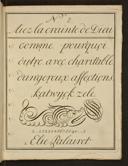 Aiez la crainte de Dieu
comme pourquoi
outre avec charitable
dangereux affections
katwyck zele
Elie Palairet